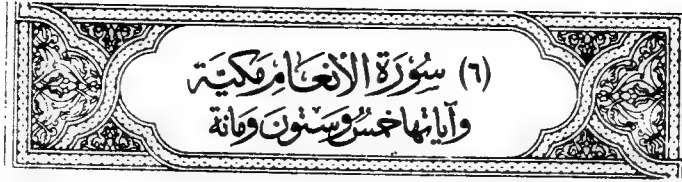 (٦) سُورَة الأنعَامِ مَكيَّة
وَآيَاتهَا خَمسٌ وَسِتّونَ وَمائة